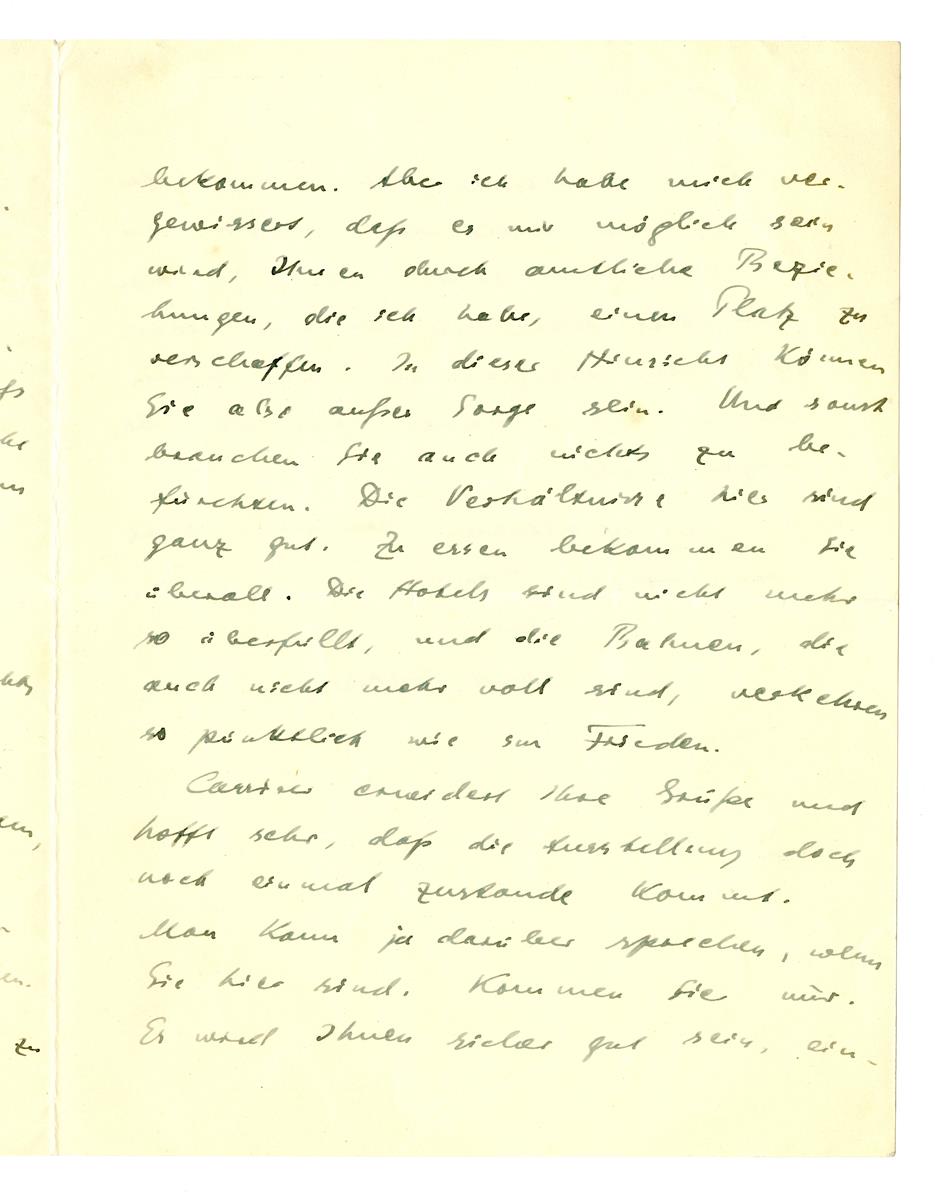 bekommen. Aber ich habe mich ver-
gewissert, daß es mir möglich sein
wird, Ihnen durch amtliche Bezie-
hungen, die ich habe, einen Platz zu
verschaffen. In dieser Hinsicht können
Sie also außer Sorge sein. Und sonst
brauchen Sie auch nichts zu be-
fürchten. Die Verhältnisse hier sind
ganz gut. Zu essen bekommen Sie
überall. Die Hotels sind nicht mehr
so überfüllt, und die Bahnen, die
auch nicht mehr voll sind, verkehren
so pünktlich wie im Frieden.
Cassirer erwidert Ihre Grüße und
hofft sehr, daß die Ausstellung doch
noch einmal zustande kommt.
Man kann ja darüber sprechen, wenn
Sie hier sind. Kommen Sie nur.
Es wird Ihnen sicher gut sein, ein-
zu